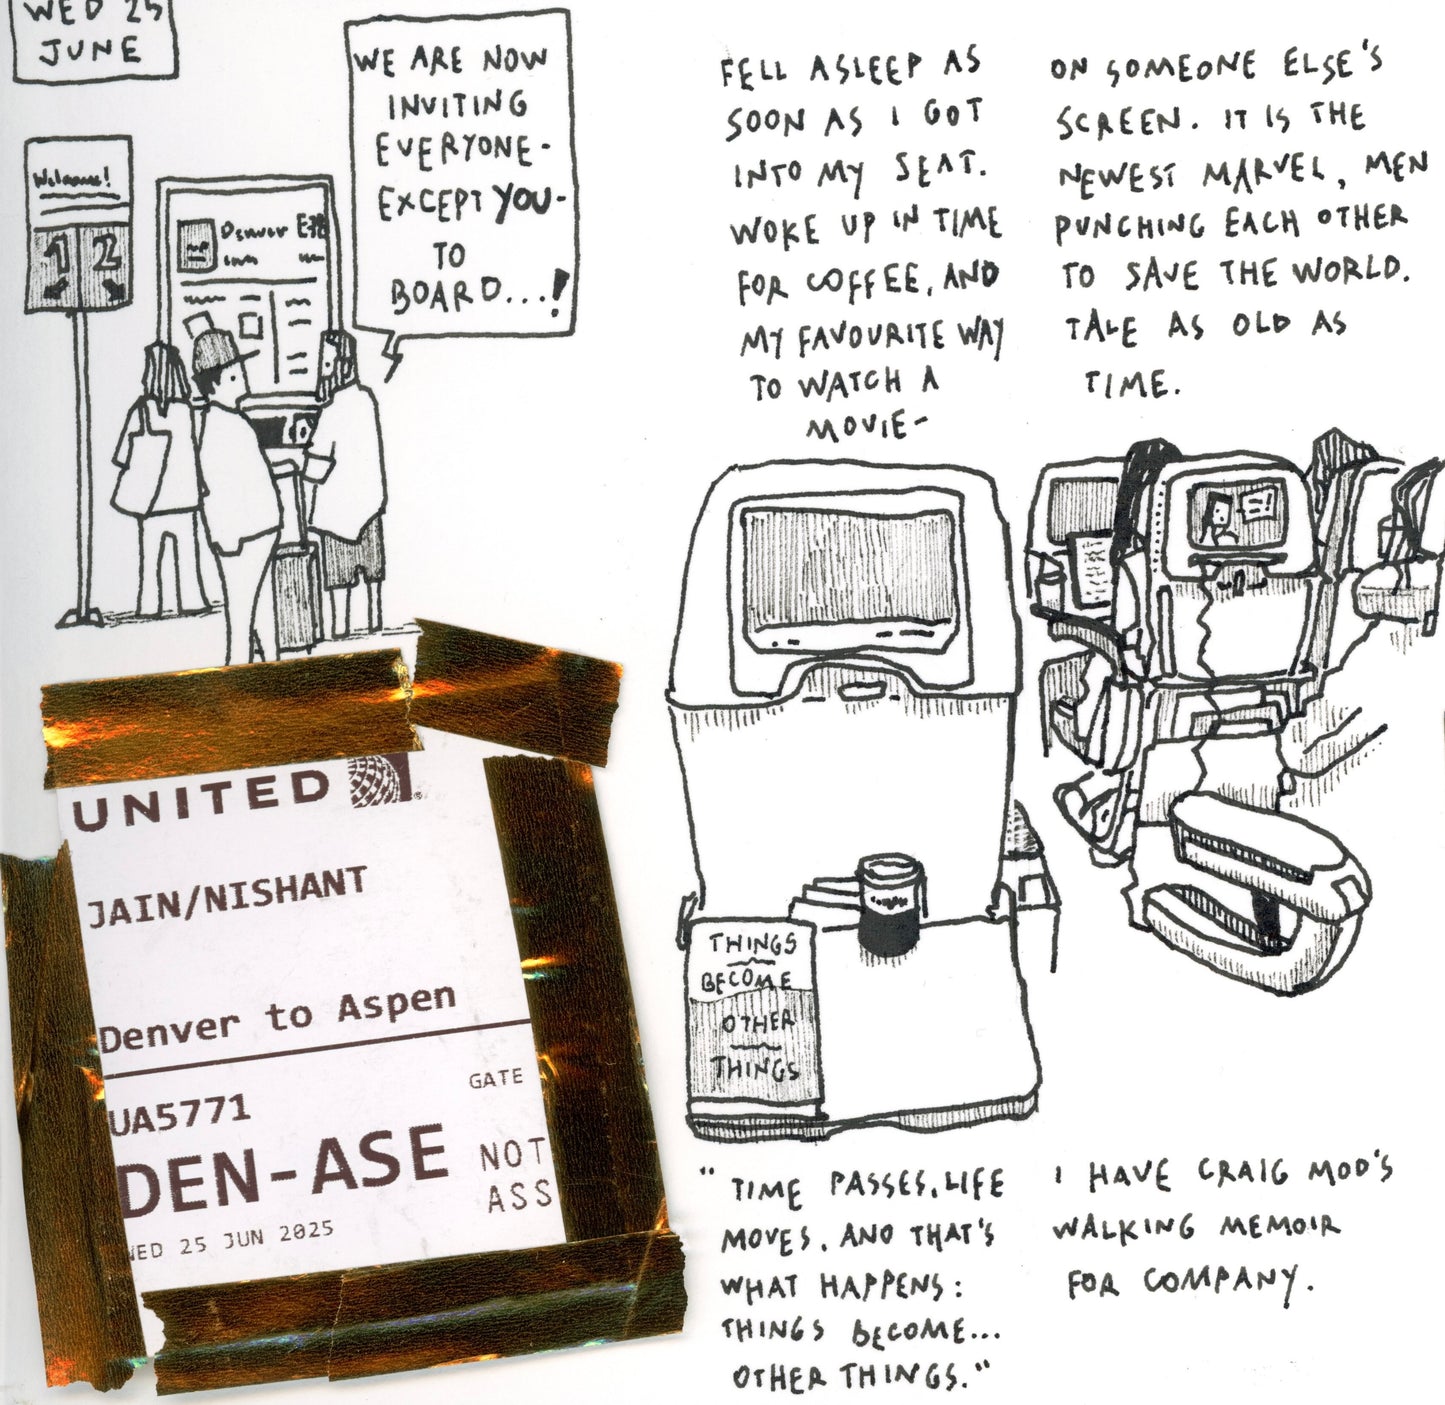 WED 25
JUNE
WE ARE NOW
INVITING
EVERYONE-
EXCEPT YOU-
TO
BOARD...!
Welcome!
1 2
Denver
UNITED
JAIN/NISHANT
Denver to Aspen
GATE
UA5771
DEN-ASE
NOT
ASS
WED 25 JUN 2025
FELL ASLEEP AS
SOON AS I GOT
INTO MY SEAT.
WOKE UP IN TIME
FOR COFFEE, AND
MY FAVOURITE WAY
TO WATCH A
MOVIE-
ON SOMEONE ELSE'S
SCREEN. IT IS THE
NEWEST MARVEL, MEN
PUNCHING EACH OTHER
TO SAVE THE WORLD.
TALE AS OLD AS
TIME.
THINGS
BECOME
OTHER
THINGS
"TIME PASSES, LIFE
MOVES. AND THAT'S
WHAT HAPPENS:
THINGS BECOME...
OTHER THINGS."
I HAVE CRAIG MOD'S
WALKING MEMOIR
FOR COMPANY.